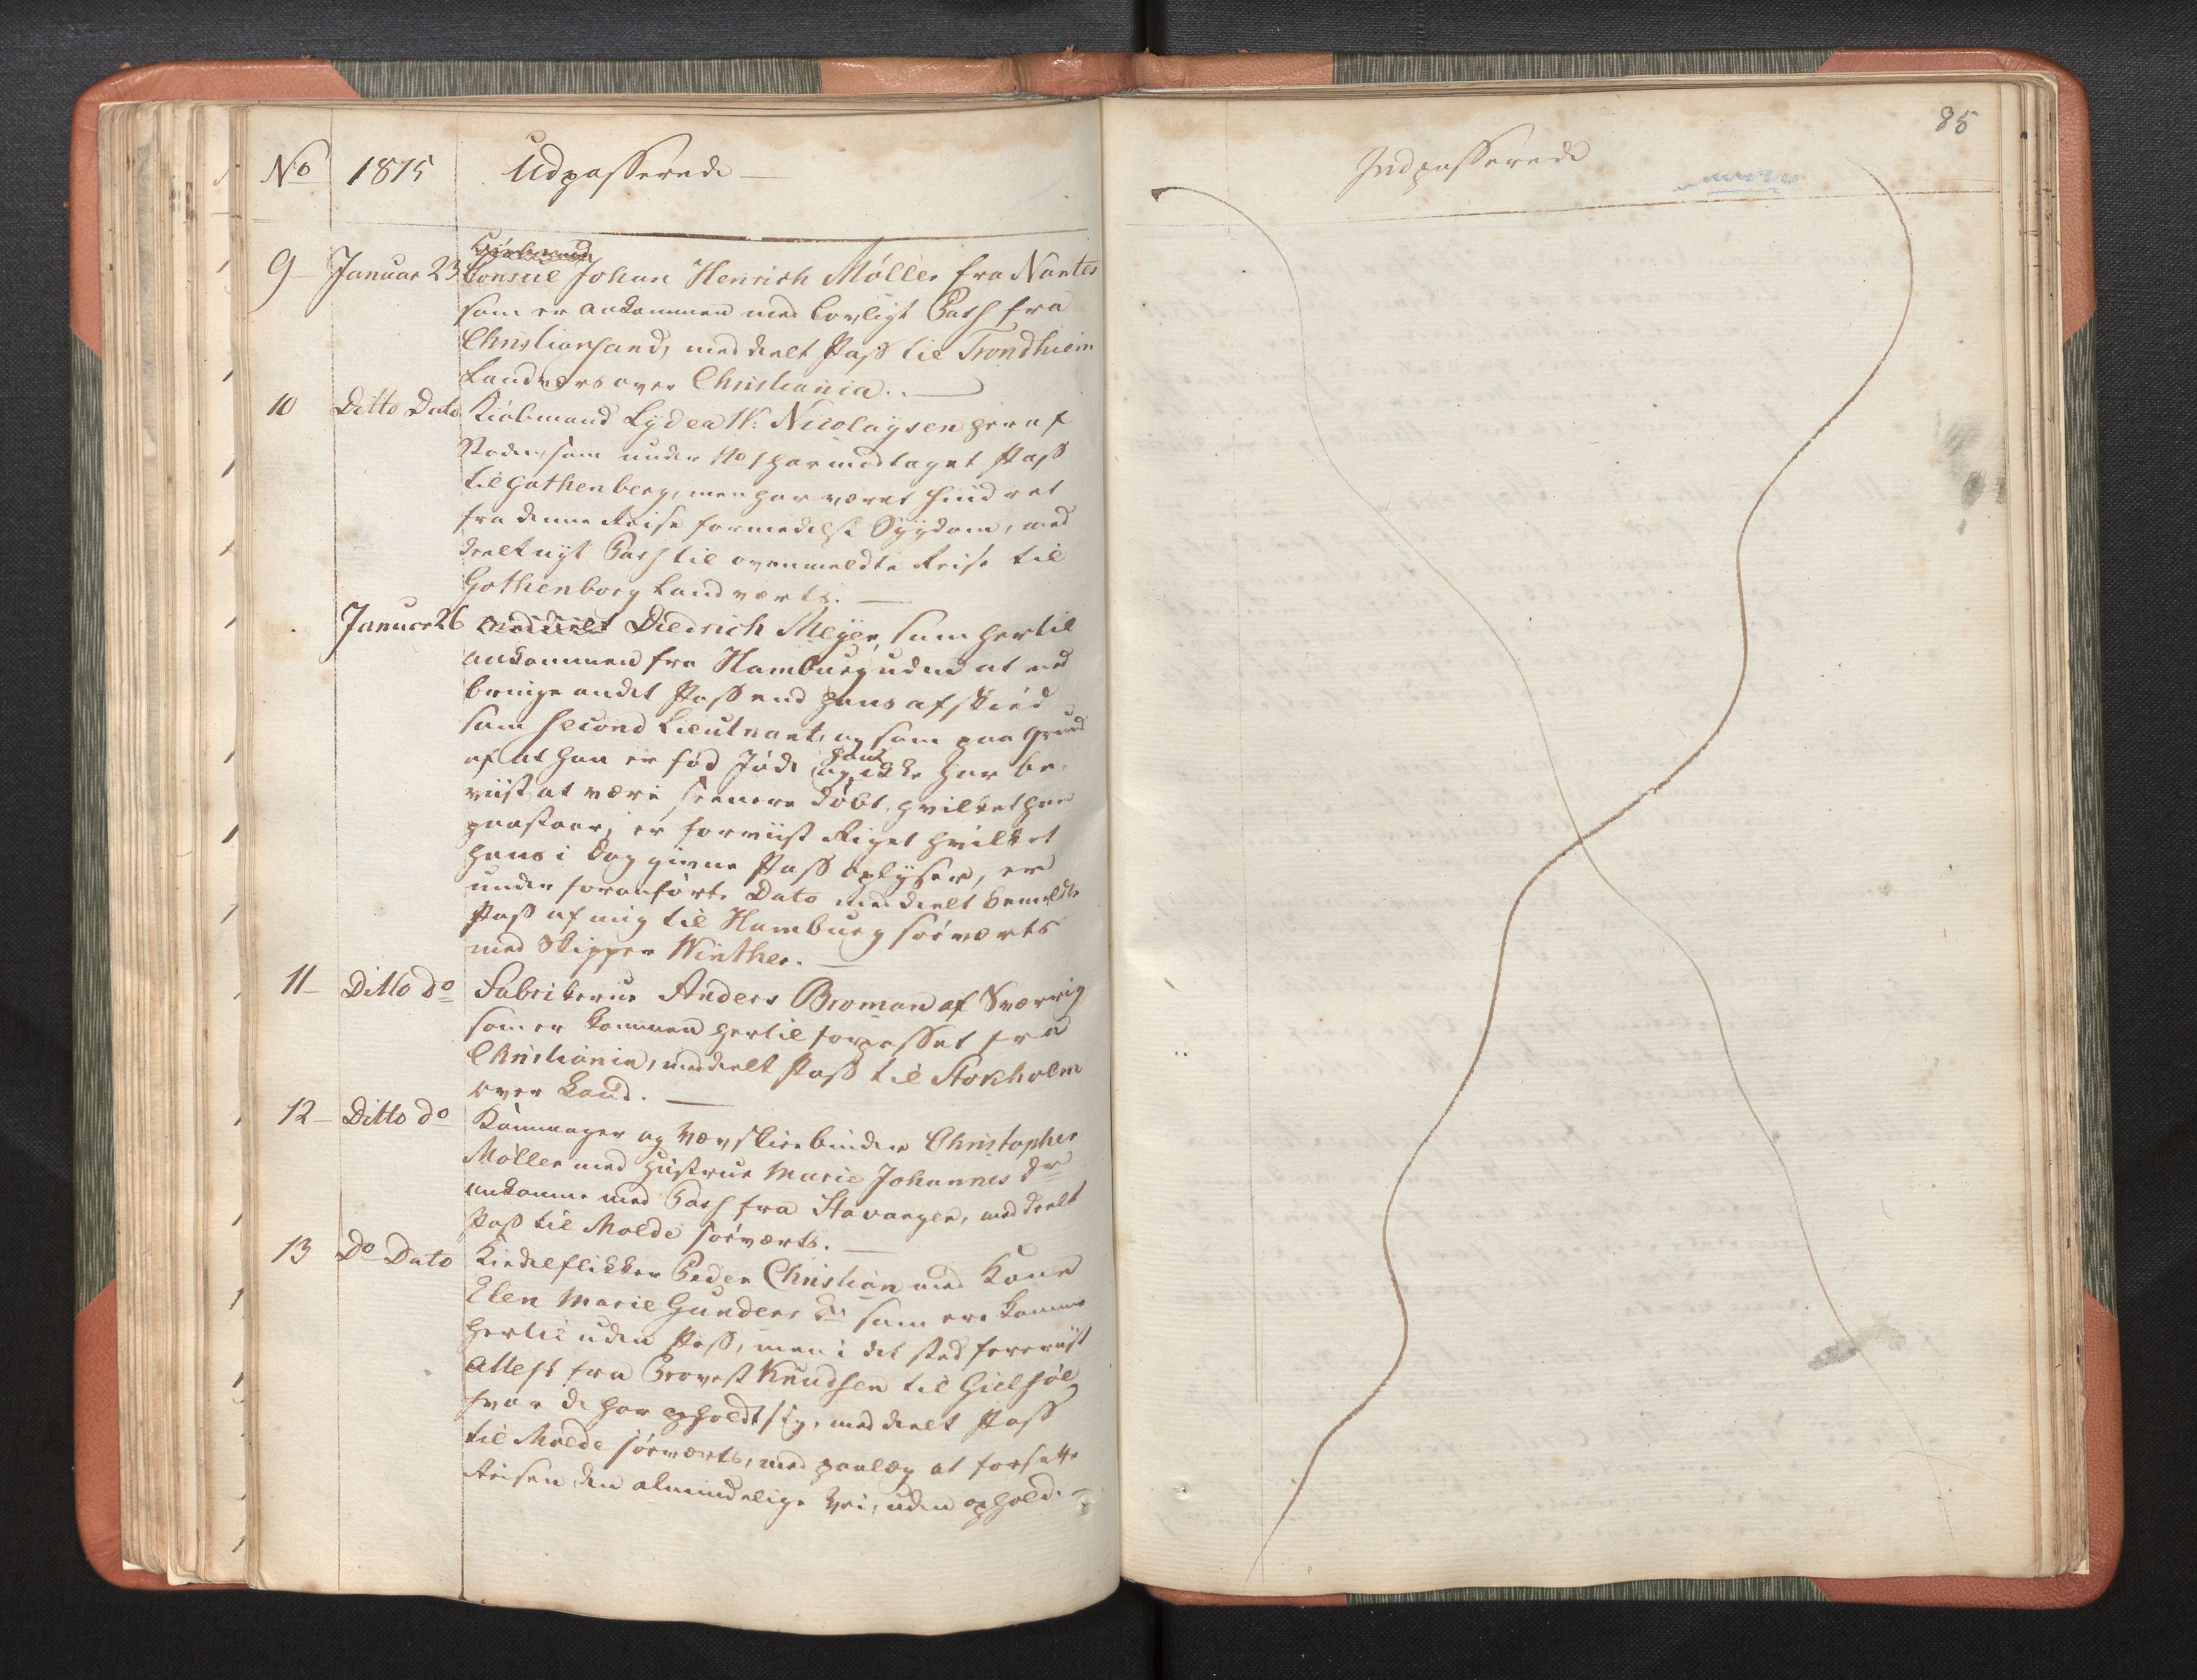 No 1815 Udpasserede
9 Januar 23 Consul Johan Henrich Møller fra Nantes
som er ankommen med lovligt Pass fra
Christiansand, meddeelt Pass til Trondhiem
Landværs over Christiania.
10 Ditto Dato Kiøbmand Lyder W: Nicolaysen her af
Staden, som under No 1 har modtaget Pass
til Gothenberg, men har været hindret
fra denne Reise formedelst Sygdom, med
deelt nyt Pass til ovenmeldte Reise til
Gothenborg Landværts.
Januar 26 Diedrich Meyer, som hertil
ankommen fra Hamburg uden at med
bringe andet Pass end hans afskeed
som Second Lieutnant, og som paa Grund
af at han er fød Jøde og ikke har be
viist at være senere døbt, hvilket han
paastaar, er forviist Riget hvilket
hans i Dag givne Pass oplyser, er
under foranførte Dato meddeelt bemeldte
Pass af mig til Hamburg søeværts
med Skipper Winther.
11 Ditto do Fabrikeur Anders Broman af Sverrig
som er kommen hertil forpasset fra
Christiania, meddeelt Pass til Stokholm
over Land.
12 Ditto do Kammager og Vævskeebinder Christopher
Møller med Hustrue Marie Johannes dr
ankomne med Pass fra Stavanger, meddeelt
Pass til Molde søeværts.
13 Do Dato Kiedelflikker Peder Christian med Kone
Elen Marie Gunders dr som ere komne
hertil uden Pass, men i det sted foreviist
Attest fra Provst Knudsen til
hvor de har opholdt sig, meddeelt Pass
til Molde søeværts, med paalæg at forsætte
Reisen den almindelige Vei, uden ophold.
Indpasserede
85